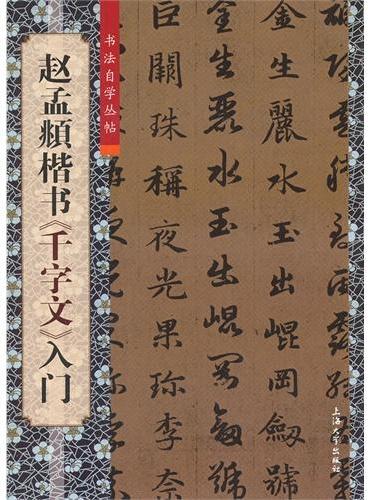 赵孟頫楷书《千字文》入门
书法自学丛帖
金生麗水玉出崐岡劔號
金生麗水玉出崐岡劔號
巨闕珠稱夜光果珍李柰
上海大学出版社